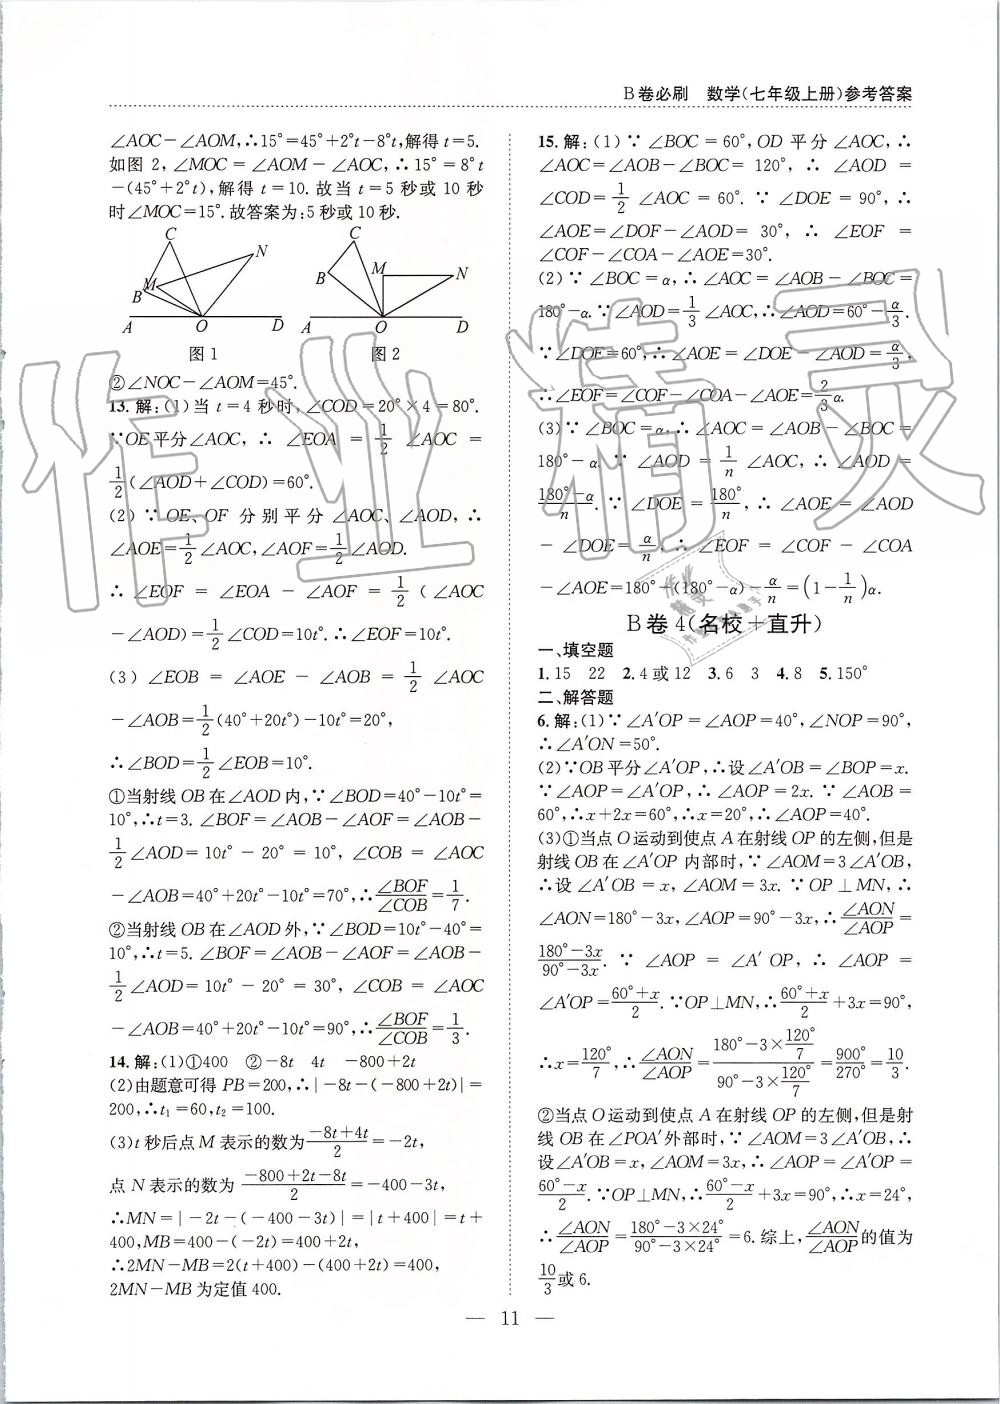 B卷必刷 数学(七年级上册)参考答案
∠AOC－∠AOM,∴15°=45°+2°t-8°t,解得 t=5.
如图 2,∠MOC=∠AOM－∠AOC,∴15°=8°t
-(45°+2°t),解得 t=10.故当 t=5 秒或 10 秒
时∠MOC=15°.故答案为:5秒或10秒.
C
N
M
B
A O D
图 1
C
B
M
N
A O D
图 2
②∠NOC－∠AOM=45°.
13.解:(1)当 t=4 秒时,∠COD=20°×4=80°.
∵OE平分∠AOC,∴∠EOA=1/2∠AOC=
1/2(∠AOD+∠COD)=60°.
(2)∵OE、OF 分别平分∠AOC、∠AOD,∴
∠AOE=1/2∠AOC,∠AOF=1/2∠AOD.
∴∠EOF=∠EOA－∠AOF=1/2(∠AOC
－∠AOD)=1/2∠COD=10t°.∴∠EOF=10t°.
(3)∠EOB=∠AOE－∠AOB=1/2∠AOC
－∠AOB=1/2(40°+20t°)-10t°=20°,
∴∠BOD=1/2∠EOB=10°.
①当射线OB在∠AOD内,∵∠BOD=40°-10t°=
10°,∴t=3.∠BOF=∠AOB－∠AOF=∠AOB－
1/2∠AOD=10t°－20°=10°,∠COB=∠AOC
－∠AOB=40°+20t°-10t°=70°,∴∠BOF/∠COB=1/7.
②当射线OB在∠AOD外,∵∠BOD=10t°-40°=
10°,∴t=5.∠BOF=∠AOB－∠AOF=∠AOB－
1/2∠AOD=10t°－20°=30°,∠COB=∠AOC
－∠AOB=40°+20t°-10t°=90°,∴∠BOF/∠COB=1/3.
14.解:(1)①400 ②-8t 4t -800+2t
(2)由题意可得PB=200,∴|-8t-(-800+2t)|=
200,∴t₁=60,t₂=100.
(3)t秒后点M表示的数为(-8t+4t)/2=-2t,
点N表示的数为(-800+2t-8t)/2=-400-3t,
∴MN=|-2t-(-400-3t)|=|t+400|=t+
400,MB=400-(-2t)=400+2t,
∴2MN-MB=2(t+400)-(400+2t)=400,
2MN-MB为定值400.
15.解:(1)∵∠BOC=60°,OD平分∠AOC,∴
∠AOC=∠AOB－∠BOC=120°,∴∠AOD=
∠COD=1/2∠AOC=60°.∵∠DOE=90°,∴
∠AOE=∠DOF－∠AOD=30°,∴∠EOF=
∠COF－∠COA－∠AOE=30°.
(2)∵∠BOC=α,∴∠AOC=∠AOB－∠BOC=
180°-α.∵∠AOD=1/3∠AOC,∴∠AOD=60°-α/3.
∵∠DOE=60°,∴∠AOE=∠DOE－∠AOD=α/3,
∴∠EOF=∠COF－∠COA－∠AOE=2/3α.
(3)∵∠BOC=α,∴∠AOC=∠AOB－∠BOC=
180°-α.∵∠AOD=1/n∠AOC,∴∠AOD=
(180°-α)/n.∵∠DOE=180°/n,∴∠AOE=∠AOD
－∠DOE=α/n,∴∠EOF=∠COF－∠COA
－∠AOE=180°-(180°-α)-α/n=(1-1/n)α.
B卷4(名校+直升)
一、填空题
1.15 22 2.4或12 3.6 3 4.8 5.150°
二、解答题
6.解:(1)∵∠A′OP=∠AOP=40°,∠NOP=90°,
∴∠A′ON=50°.
(2)∵OB平分∠A′OP,∴设∠A′OB=∠BOP=x.
∵∠AOP=∠A′OP,∴∠AOP=2x.∵∠AOB=
60°,∴x+2x=60°,∴x=20°,∴∠AOP=40°.
(3)①当点O运动到使点A在射线OP的左侧,但是
射线OB在∠A′OP内部时,∵∠AOM=3∠A′OB,
∴设∠A′OB=x,∠AOM=3x.∵OP⊥MN,∴
∠AON=180°-3x,∠AOP=90°-3x,∴∠AON/∠AOP=
(180°-3x)/(90°-3x).∵∠AOP=∠A′OP,∴∠AOP=
∠A′OP=(60°+x)/2.∵OP⊥MN,∴(60°+x)/2+3x=90°,
∴x=120°/7,∴∠AON/∠AOP=(180°-3×120°/7)/(90°-3×120°/7)=900°/270°=10/3
②当点O运动到使点A在射线OP的左侧,但是射
线OB在∠POA′外部时,∵∠AOM=3∠A′OB,∴
设∠A′OB=x,∠AOM=3x,∴∠AOP=∠A′OP=
(60°-x)/2.∵OP⊥MN,∴(60°-x)/2+3x=90°,∴x=24°,
∴∠AON/∠AOP=(180°-3×24°)/(90°-3×24°)=6.综上,∠AON/∠AOP的值为
10/3或6.
— 11 —
作业精灵